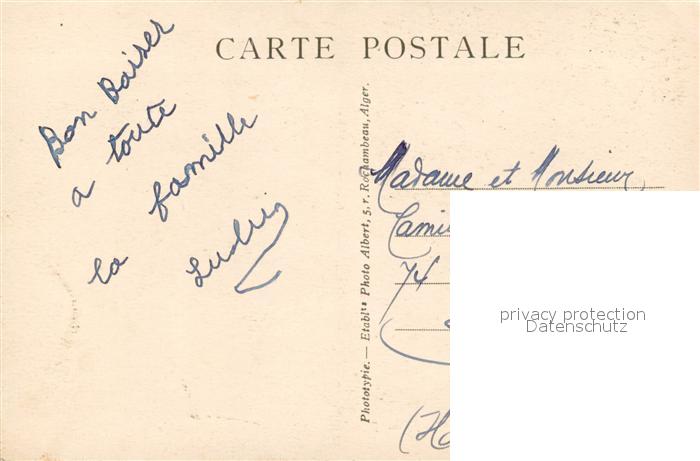 CARTE POSTALE
Bon Baiser
a toute
la famille
Phototypie. — Etablts Photo Albert, 5, r. Rochambeau, Alger.
Madame et Monsieur,
74
privacy protection
Datenschutz